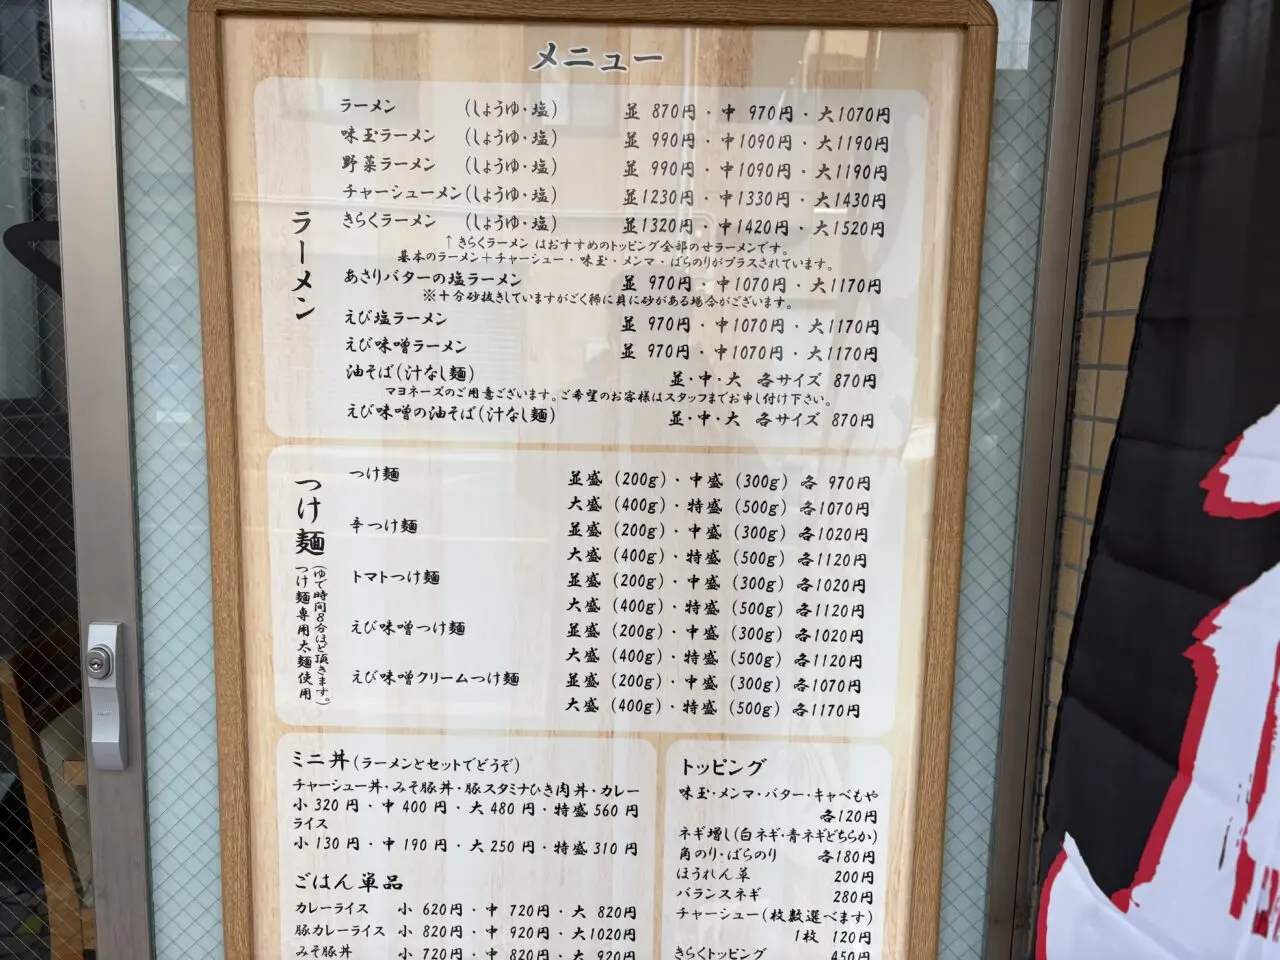 メニュー
ラーメン
ラーメン (しょうゆ・塩) 並 870円・中 970円・大1070円
味玉ラーメン (しょうゆ・塩) 並 990円・中1090円・大1190円
野菜ラーメン (しょうゆ・塩) 並 990円・中1090円・大1190円
チャーシューメン(しょうゆ・塩) 並1230円・中1330円・大1430円
きらくラーメン (しょうゆ・塩) 並1320円・中1420円・大1520円
↑きらくラーメン はおすすめのトッピング全部のせラーメンです。
基本のラーメン＋チャーシュー・味玉・メンマ・ばらのりがプラスされています。
あさりバターの塩ラーメン 並 970円・中1070円・大1170円
※十分砂抜きしていますがごく稀に貝に砂がある場合がございます。
えび塩ラーメン 並 970円・中1070円・大1170円
えび味噌ラーメン 並 970円・中1070円・大1170円
油そば(汁なし麺) 並・中・大 各サイズ 870円
マヨネーズのご用意ございます。ご希望のお客様はスタッフまでお申し付け下さい。
えび味噌の油そば(汁なし麺) 並・中・大 各サイズ 870円
つけ麺
(ゆで時間8分ほど頂きます。)
つけ麺専用太麺使用
つけ麺 並盛 (200g)・中盛 (300g) 各 970円
大盛 (400g)・特盛 (500g) 各1070円
辛つけ麺 並盛 (200g)・中盛 (300g) 各1020円
大盛 (400g)・特盛 (500g) 各1120円
トマトつけ麺 並盛 (200g)・中盛 (300g) 各1020円
大盛 (400g)・特盛 (500g) 各1120円
えび味噌つけ麺 並盛 (200g)・中盛 (300g) 各1020円
大盛 (400g)・特盛 (500g) 各1120円
えび味噌クリームつけ麺 並盛 (200g)・中盛 (300g) 各1070円
大盛 (400g)・特盛 (500g) 各1170円
ミニ丼(ラーメンとセットでどうぞ)
チャーシュー丼・みそ豚丼・豚スタミナひき肉丼・カレー
小 320 円・中 400 円・大 480 円・特盛 560 円
ライス
小 130 円・中 190 円・大 250 円・特盛 310 円
ごはん単品
カレーライス 小 620円・中 720円・大 820円
豚カレーライス 小 820円・中 920円・大1020円
みそ豚丼 小 720円・中 820円・大 920円
トッピング
味玉・メンマ・バター・キャベもや
各120円
ネギ増し(白ネギ・青ネギどちらか)
角のり・ばらのり 各180円
ほうれん草 200円
バランスネギ 280円
チャーシュー(枚数選べます)
1枚 120円
きらくトッピング 450円